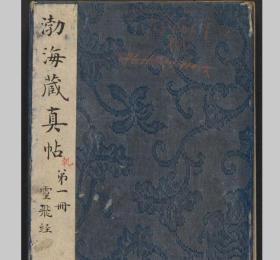 渤海藏真帖
第一冊
靈飛經